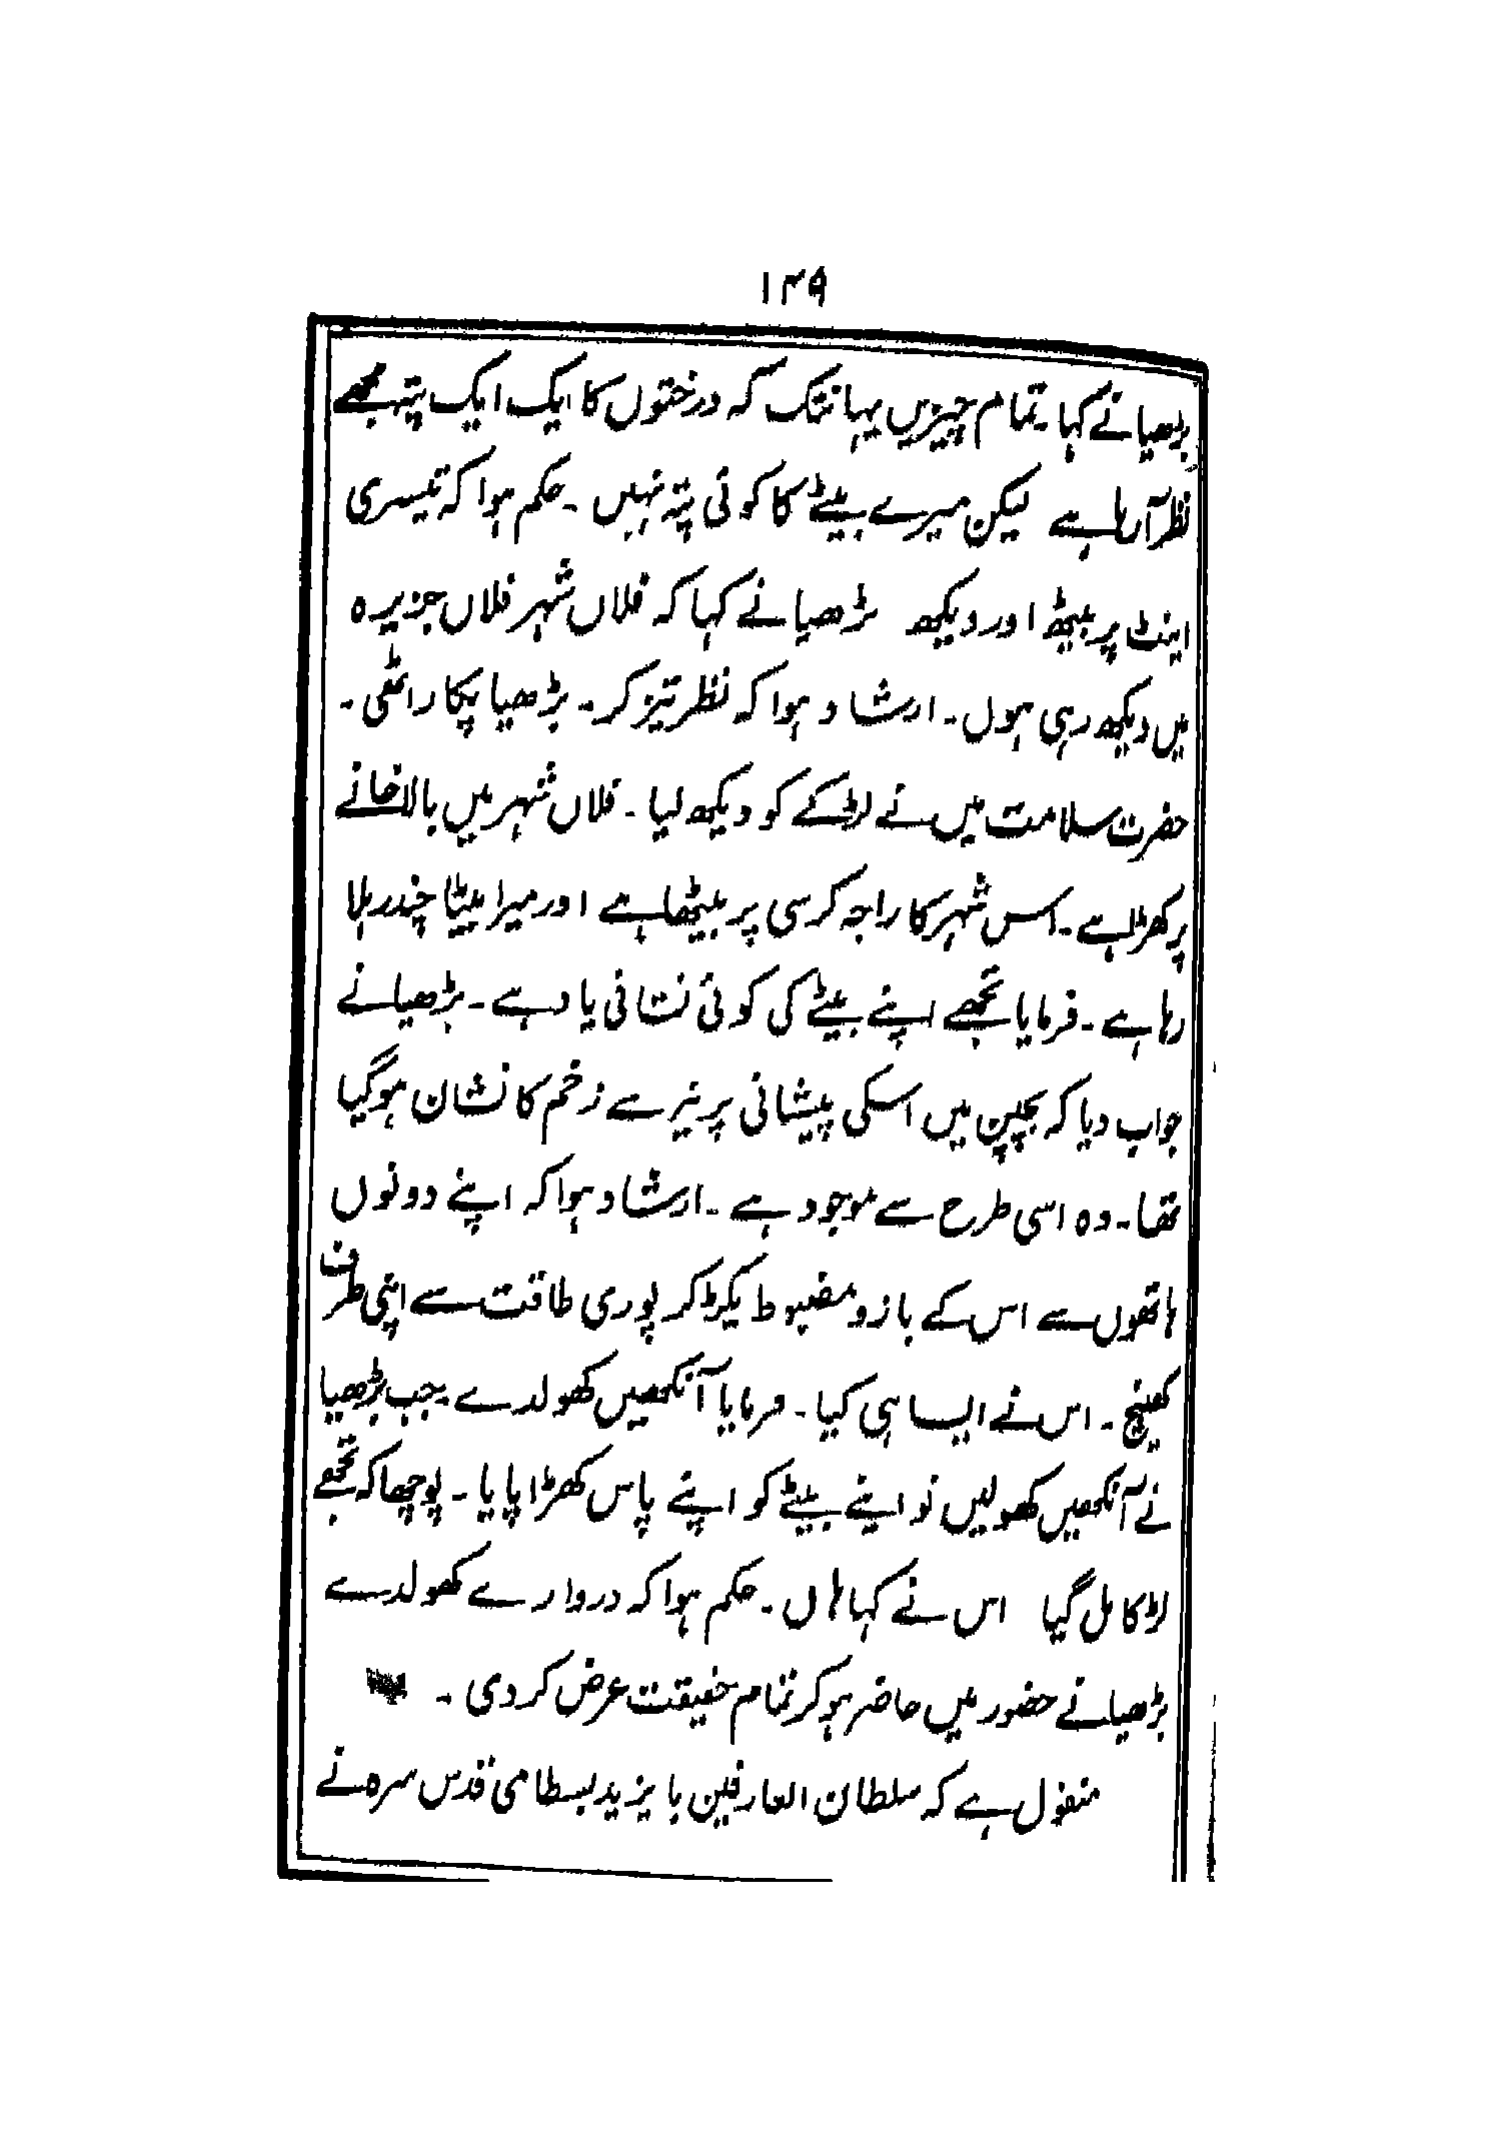 ۱۳۹
بڑھیا نے کہا ۔ تمام چیزیں یہانتک کہ درختوں کا ایک ایک پتہ مجھے
نظر آ رہا ہے لیکن میرے بیٹے کا کوئی پتہ نہیں ۔ حکم ہوا کہ تیسری
اینٹ پر بیٹھ اور دیکھ بڑھیا نے کہا کہ فلاں شہر فلاں جزیرہ
میں دیکھ رہی ہوں ۔ ارشاد ہوا کہ نظر تیز کر ۔ بڑھیا پکار اٹھی ۔
حضرت سلامت میں نے لڑکے کو دیکھ لیا ۔ فلاں شہر میں بالاخانے
پر کھڑا ہے ۔ اس شہر کا راجہ کرسی پر بیٹھا ہے اور میرا بیٹا چندر ہلا
رہا ہے ۔ فرمایا تجھے اپنے بیٹے کی کوئی نشانی یاد ہے ۔ بڑھیا نے
جواب دیا کہ بچپن میں اسکی پیشانی پر نیزے زخم کا نشان ہو گیا
تھا ۔ وہ اسی طرح سے موجود ہے ۔ ارشاد ہوا کہ اپنے دونوں
ہاتھوں سے اس کے بازو مضبوط پکڑ کر پوری طاقت سے اپنی طرف
کھینچ ۔ اس نے ایسا ہی کیا ۔ فرمایا آنکھیں کھولدے ۔ جب بڑھیا
نے آنکھیں کھولیں تو اپنے بیٹے کو اپنے پاس کھڑا پایا ۔ پوچھا کہ تجھے
لڑکا مل گیا اس نے کہا ہاں ۔ حکم ہوا کہ دروازے کھولدے
بڑھیا نے حضور میں حاضر ہو کر تمام حقیقت عرض کر دی ۔
منقول ہے کہ سلطان العارفین بایزید بسطامی قدس سرہ نے